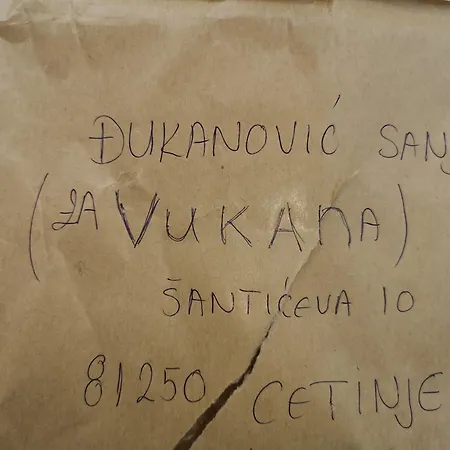 ĐUKANOVIĆ SANJ
(ZA VUKANA)
ŠANTIĆEVA 10
81250 CETINJE